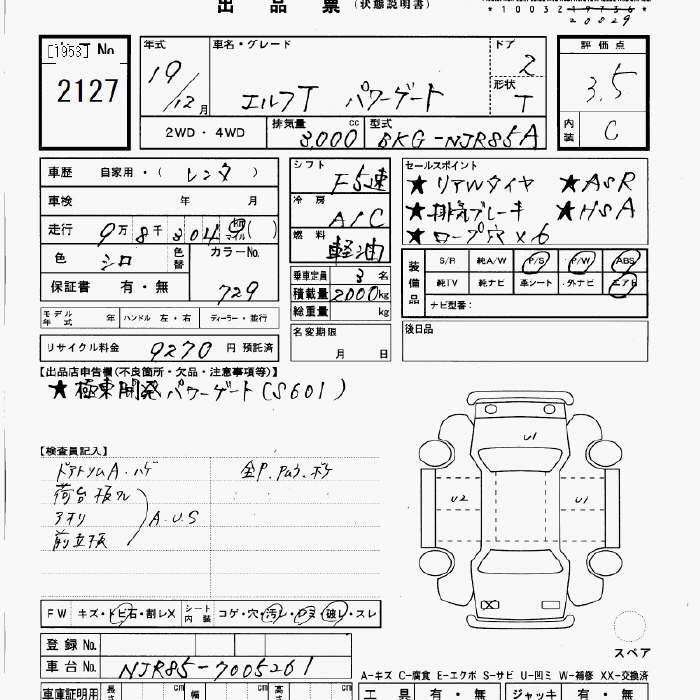 出品票(状態説明書)
* 1 0 0 3 2
20829
[1953] No
2127
年式 19/12月
車名・グレード エルフT パワーゲート
ドア 2
形状 T
2WD・4WD
排気量 3,000 cc
型式 BKG-NJR85A
評価点 3.5
内装 C
車歴 自家用・(レンタ)
車検 年 月
走行 9万8千304 km マイル( )
色 シロ 色替 カラーNo. 729
保証書 有・無
モデル年式 年 ハンドル 左・右 ディーラー・並行
リサイクル料金 9270 円 預託済
シフト F5速
冷房 A/C
燃料 軽油
乗車定員 3名
積載量 2000kg
総重量 kg
名変期限 月 日
セールスポイント
★ リアWタイヤ ★ASR
★排気ブレーキ ★HSA
★ロープ穴×6
装備品 S/R 純A/W P/S P/W ABS
純TV 純ナビ 革シート 外ナビ エアB
ナビ型番:
後日品
【出品店申告欄(不良箇所・欠品・注意事項等)】
★ 極東開発パワーゲート(S601)
【検査員記入】
ドアトリムA・ハゲ
荷台板ワレ
アオリ
前立板
A.U.S
U1
U2
U1
FW キズ・トビ石・割レX シート内装 コゲ・穴・汚レ・ハヌ・破レ・スレ
登録No.
車台No. NJR85-7005261
スペア
A-キズ C-腐食 E-エクボ S-サビ U-凹ミ W-補修 XX-交換済
車庫証明用 長さ cm 幅 cm 高さ cm
工具 有・無 ジャッキ 有・無